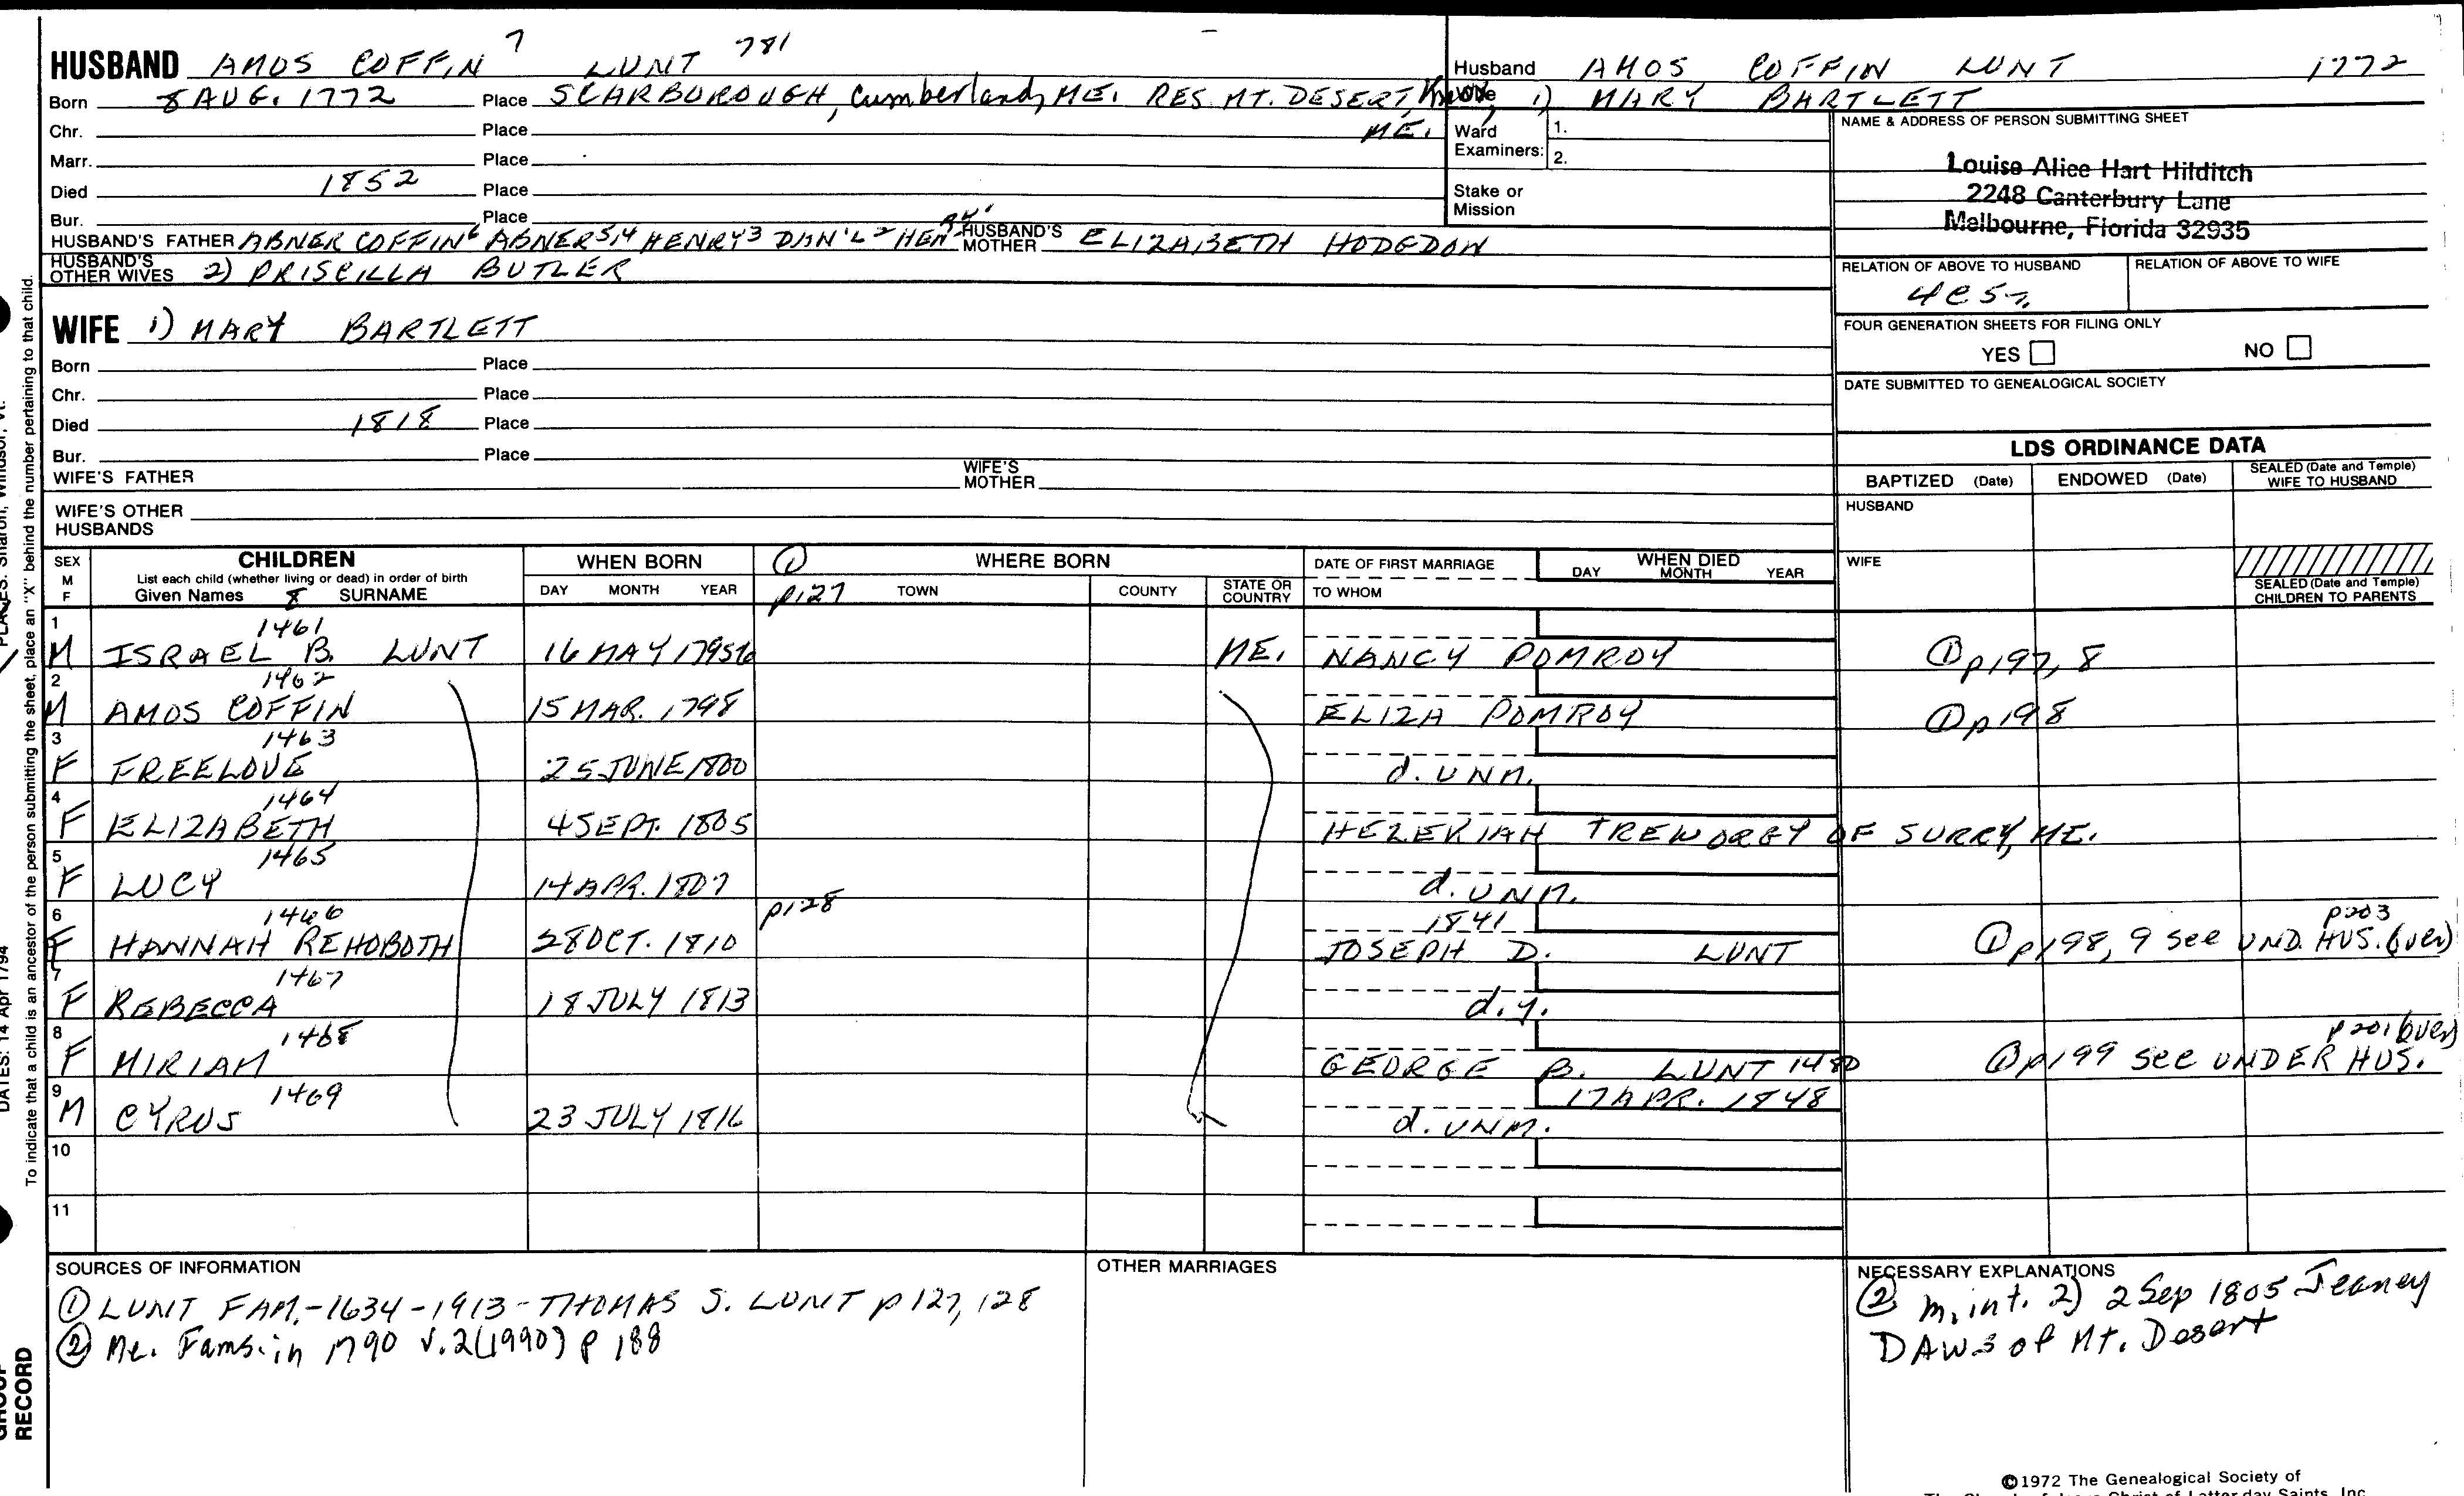 HUSBAND AMOS COFFIN 7 LUNT 781
Born 8 AUG. 1772 Place SCARBOROUGH, Cumberland, ME. RES. MT. DESERT,
ME.
Chr. Place
Marr. Place
Died 1852 Place
Bur. Place
HUSBAND'S FATHER ABNER COFFIN6 ABNER5,4 HENRY3 DAN'L2 HEN RY1 HUSBAND'S MOTHER ELIZABETH HODGDON
HUSBAND'S OTHER WIVES 2) PRISCILLA BUTLER
Husband AMOS COFFIN LUNT 1772
1) MARY BARTLETT
Ward Examiners: 1.
2.
Stake or Mission
NAME & ADDRESS OF PERSON SUBMITTING SHEET
Louise Alice Hart Hilditch
2248 Canterbury Lane
Melbourne, Florida 32935
RELATION OF ABOVE TO HUSBAND RELATION OF ABOVE TO WIFE
FOUR GENERATION SHEETS FOR FILING ONLY
YES NO
DATE SUBMITTED TO GENEALOGICAL SOCIETY
WIFE 1) MARY BARTLETT
Born Place
Chr. Place
Died 1818 Place
Bur. Place
WIFE'S FATHER WIFE'S MOTHER
WIFE'S OTHER HUSBANDS
LDS ORDINANCE DATA
BAPTIZED (Date) ENDOWED (Date) SEALED (Date and Temple) WIFE TO HUSBAND
HUSBAND
WIFE
SEALED (Date and Temple) CHILDREN TO PARENTS
SEX M F
CHILDREN
List each child (whether living or dead) in order of birth
Given Names 8 SURNAME
WHEN BORN
DAY MONTH YEAR
① p127
WHERE BORN
TOWN COUNTY STATE OR COUNTRY
DATE OF FIRST MARRIAGE
TO WHOM
WHEN DIED
DAY MONTH YEAR
1 1461
M ISRAEL B. LUNT 16 MAY 1795/6 ME. NANCY POMROY ① p197, 8
2 1462
M AMOS COFFIN 15 MAR. 1798 ELIZA POMROY ① p198
3 1463
F FREELOVE 25 JUNE 1800 d. UNM.
4 1464
F ELIZABETH 4 SEPT. 1805 HEZEKIAH TREWORGY OF SURRY, ME.
5 1465
F LUCY 14 APR. 1807 d. UNM.
6 1466 p128 1841 p203
F HANNAH REHOBOTH 28 OCT. 1810 JOSEPH D. LUNT ① p198, 9 see UND. HUS. (over)
7 1467
F REBECCA 18 JULY 1813 d.y.
8 1468 p201 (over)
F MIRIAM GEORGE B. LUNT 1480 ① p199 see UNDER HUS.
9 1469 17 APR. 1848
M CYRUS 23 JULY 1816 d. UNM.
10
11
SOURCES OF INFORMATION
① LUNT FAM.-1634-1913-THOMAS S. LUNT p 127, 128
② Me. Fams. in 1790 v.2 (1990) p 188
OTHER MARRIAGES
NECESSARY EXPLANATIONS
② m. int. 2) 2 Sep 1805 Jeaney
DAWS of Mt. Desert
©1972 The Genealogical Society of
The Church of Jesus Christ of Latter-day Saints, Inc.
To indicate that a child is an ancestor of the person submitting the sheet, place an "X" behind the number pertaining to that child.
PLACES: Sharon, Windsor, Vt.
DATES: 14 Apr 1794
GROUP
RECORD